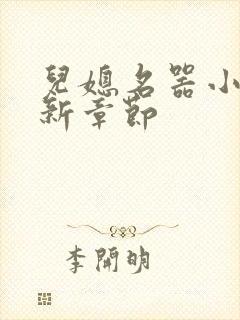 兒媳名器小
新章節
李開明